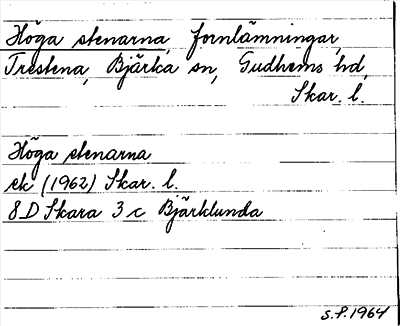 Höga stenarna, fornlämningar,
Trestena, Bjärka sn, Gudhems hd,
Skar. l.
Höga stenarna
ek (1962) Skar. l.
8D Skara 3 c Bjärklunda
S.F. 1964